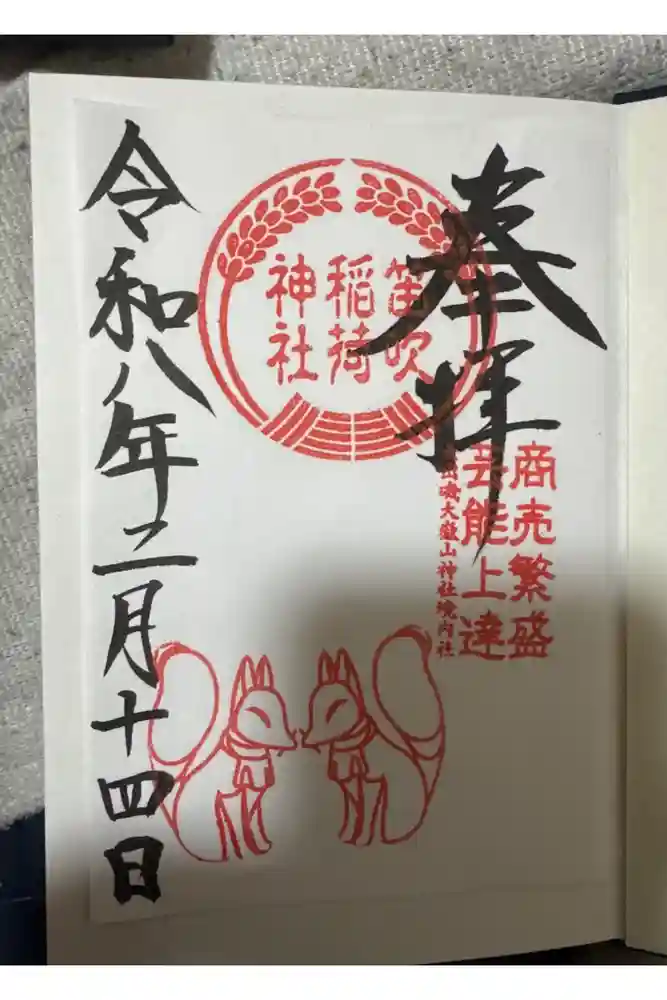 奉拝
笛吹
稲荷
神社
商売繁盛
芸能上達
大嶽山神社境内社
令和八年二月十四日